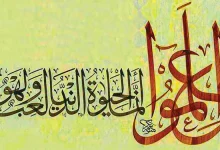 اعلموا أنما الحيوة الدنيا لعب ولهو